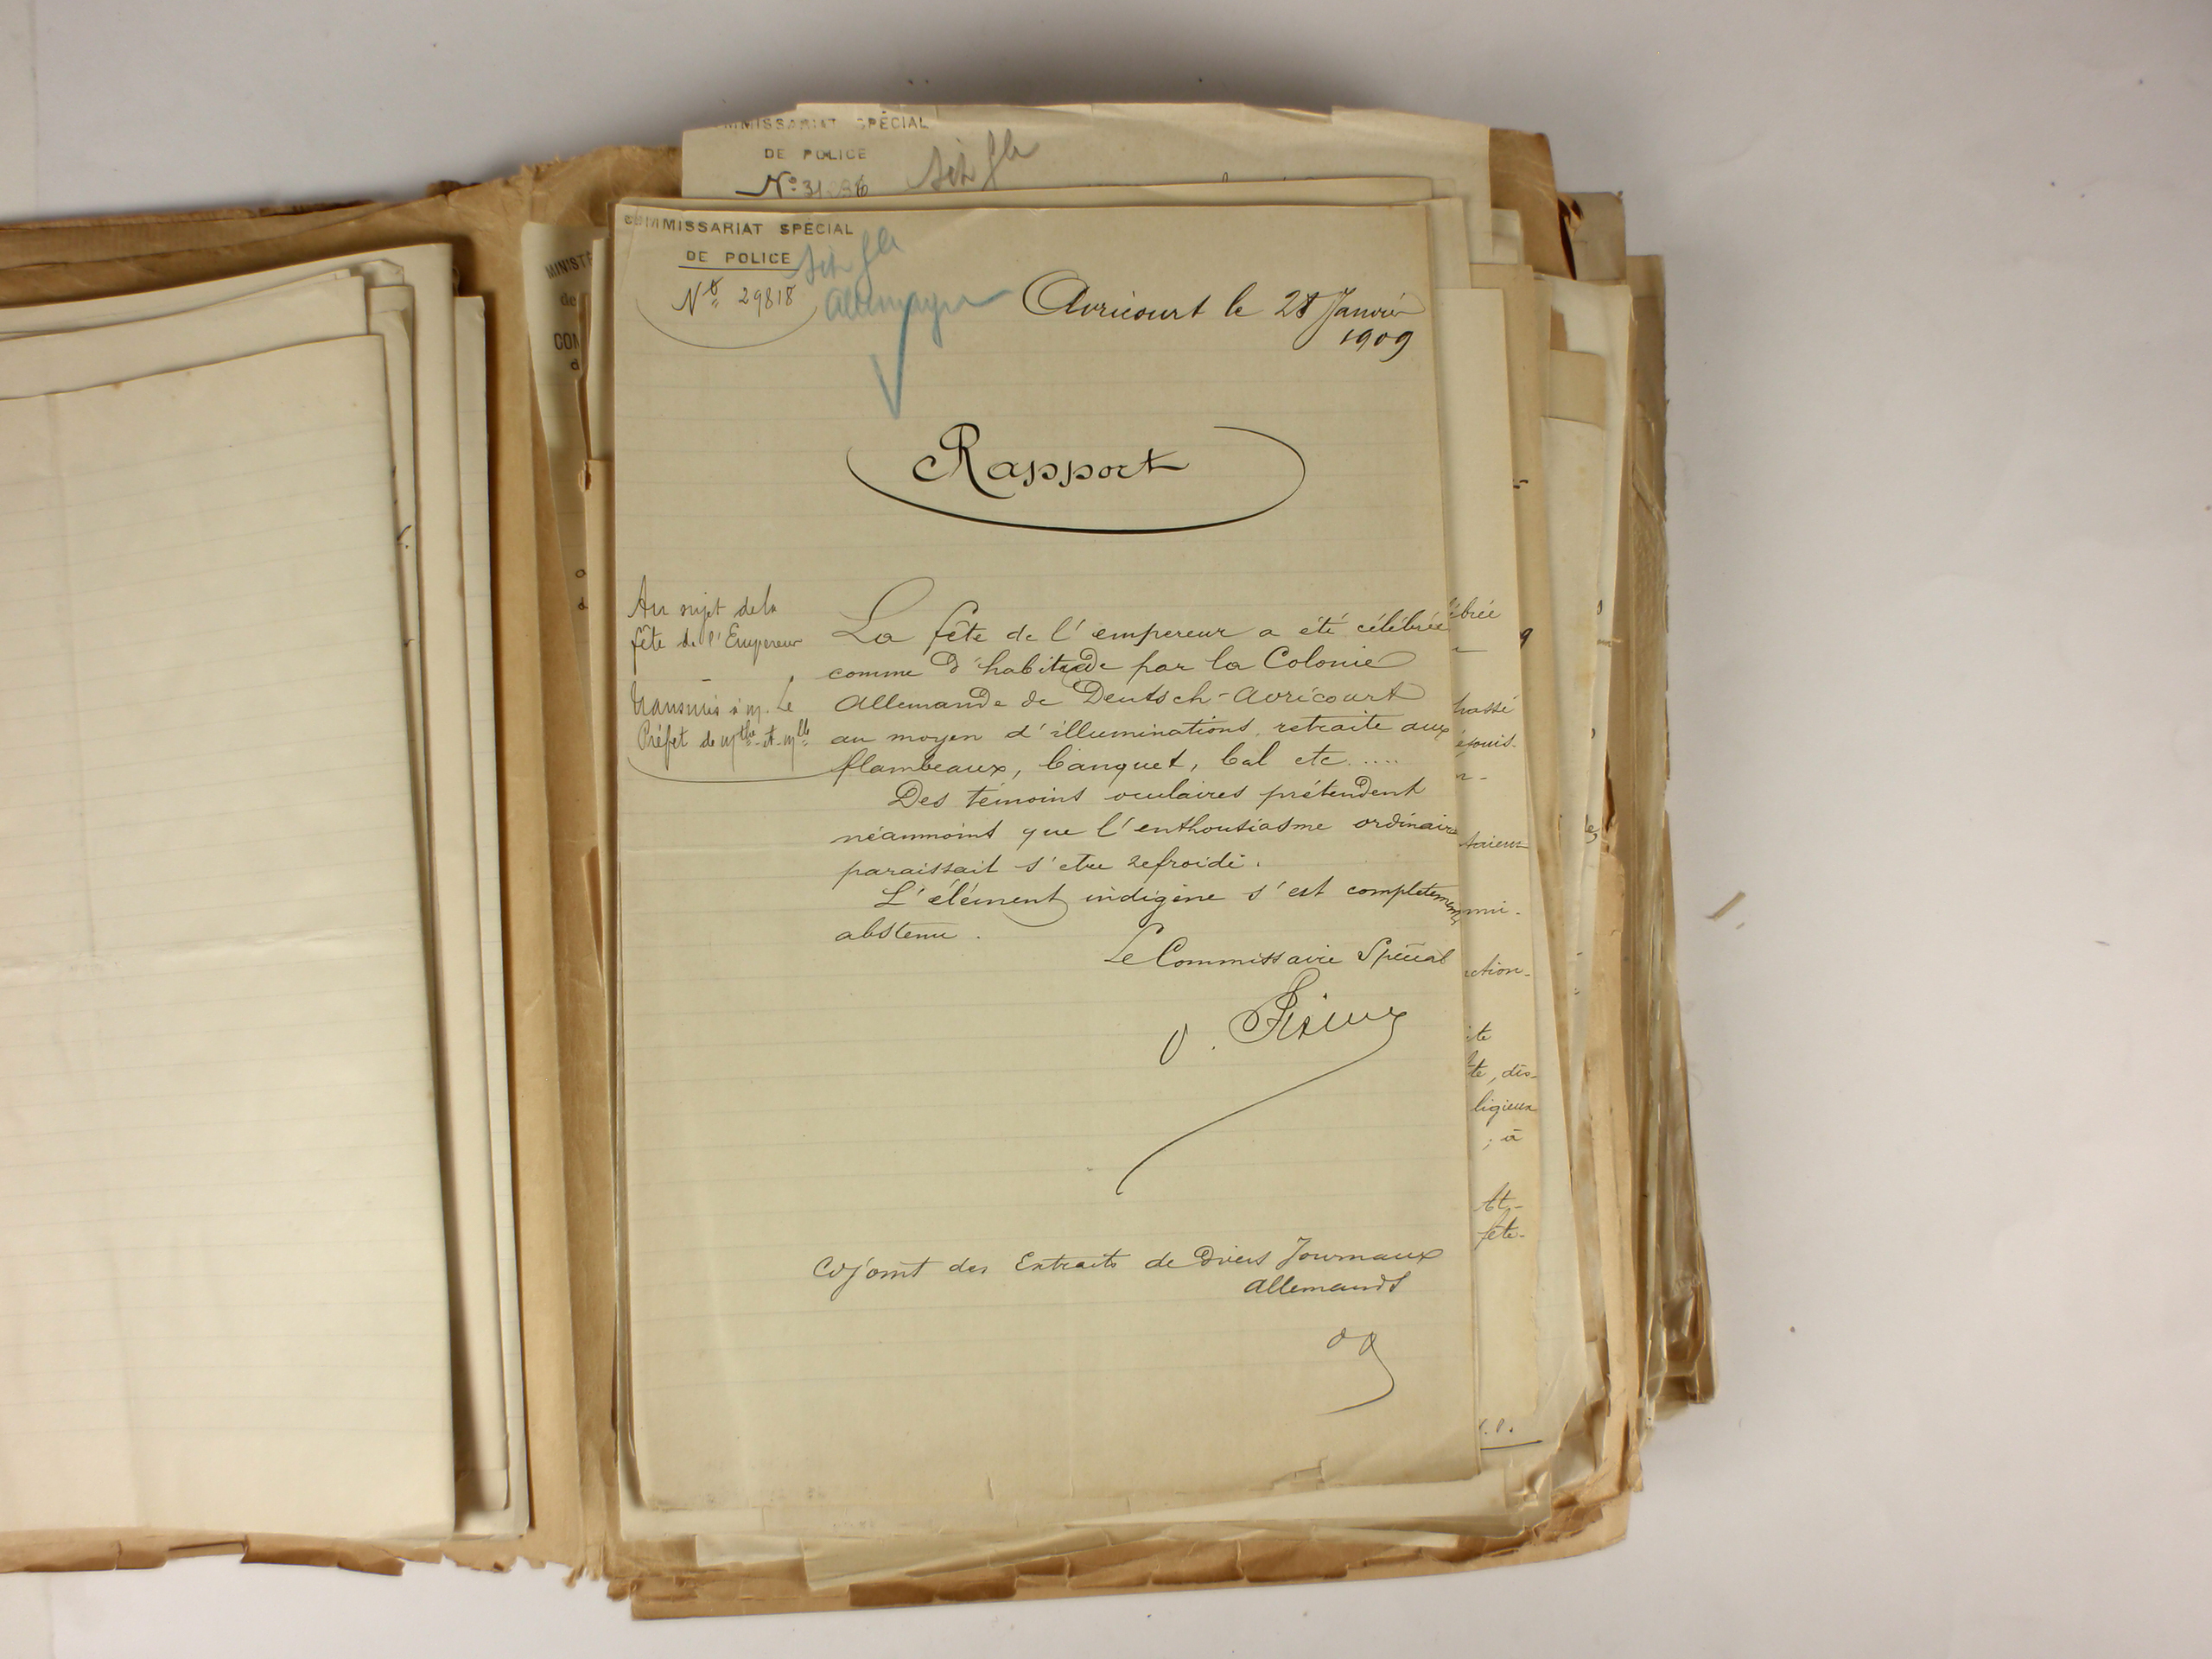 COMMISSARIAT SPÉCIAL
DE POLICE
N° 
COMMISSARIAT SPÉCIAL
DE POLICE
N° 29818
Sit gle
Allemagne
Avricourt le 28 Janvier
1909
Rapport
Au sujet de la
fête de l'Empereur
Transmis à M. Le
Préfet de Mthe-et-Mlle
La fête de l'empereur a été célébrée
comme d'habitude par la Colonie
Allemande de Deutsch-Avricourt
au moyen d'illuminations, retraite aux
flambeaux, banquet, bal etc.....
Des témoins oculaires prétendent
néanmoins que l'enthousiasme ordinaire
paraissait s'etre refroidi.
L'élément indigène s'est completement
abstenu.
Le Commissaire Spécial
Cijoint des Extraits de Divers Journaux
Allemands
MINISTÈ
de
CON
ébrée
hassé
ction-
ite
te, dis-
ligieux
; à
fête-